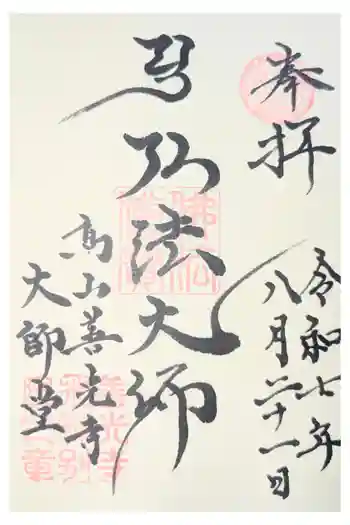 奉拝
令和七年
八月二十一日
弘法大師
高山善光寺
大師堂